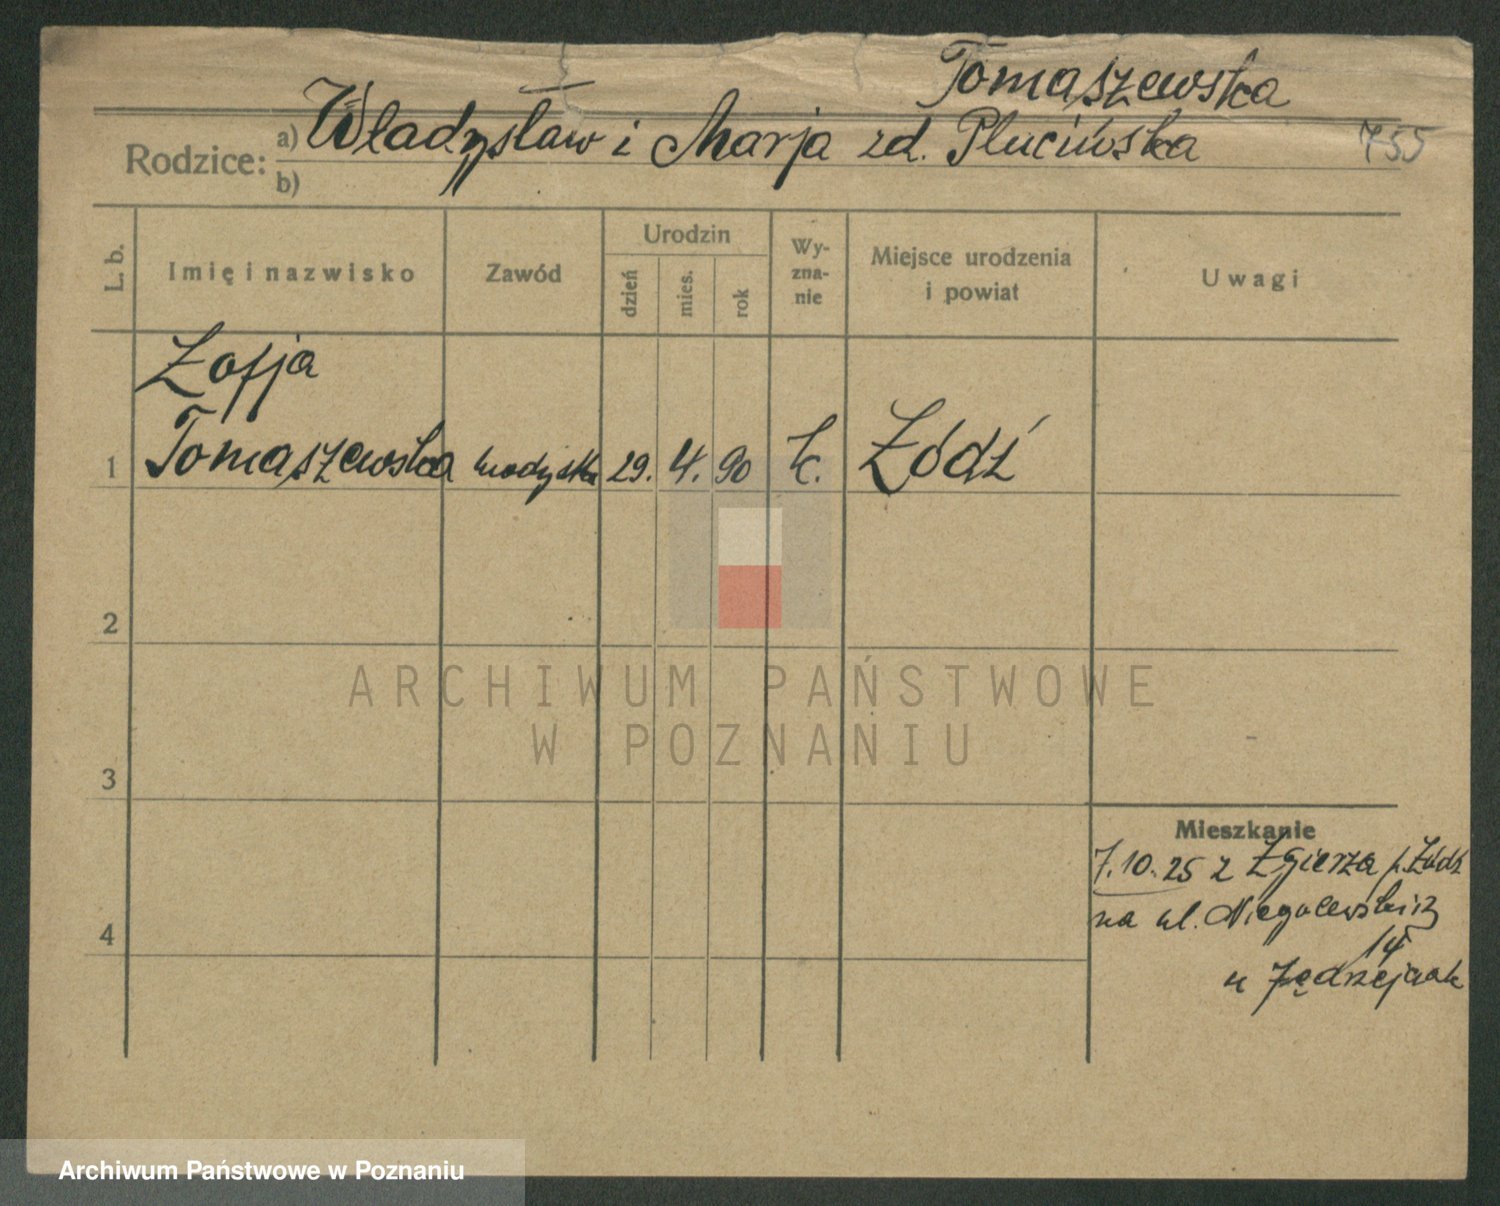 Tomaszewska
Rodzice: a) Władysław i Marja zd. Plucińska 755
b)
L. b. Imię i nazwisko Zawód Urodzin dzień mies. rok Wy-zna-nie Miejsce urodzenia i powiat Uwagi
Zofja
1 Tomaszewska 29. 4. 90 k. Łódź
2
3
Mieszkanie
7.10.25 z Zgierza p. Łódź
4 na ul. Niegolewskich
14
u Jędrzejczak
ARCHIWUM PAŃSTWOWE
W POZNANIU
Archiwum Państwowe w Poznaniu